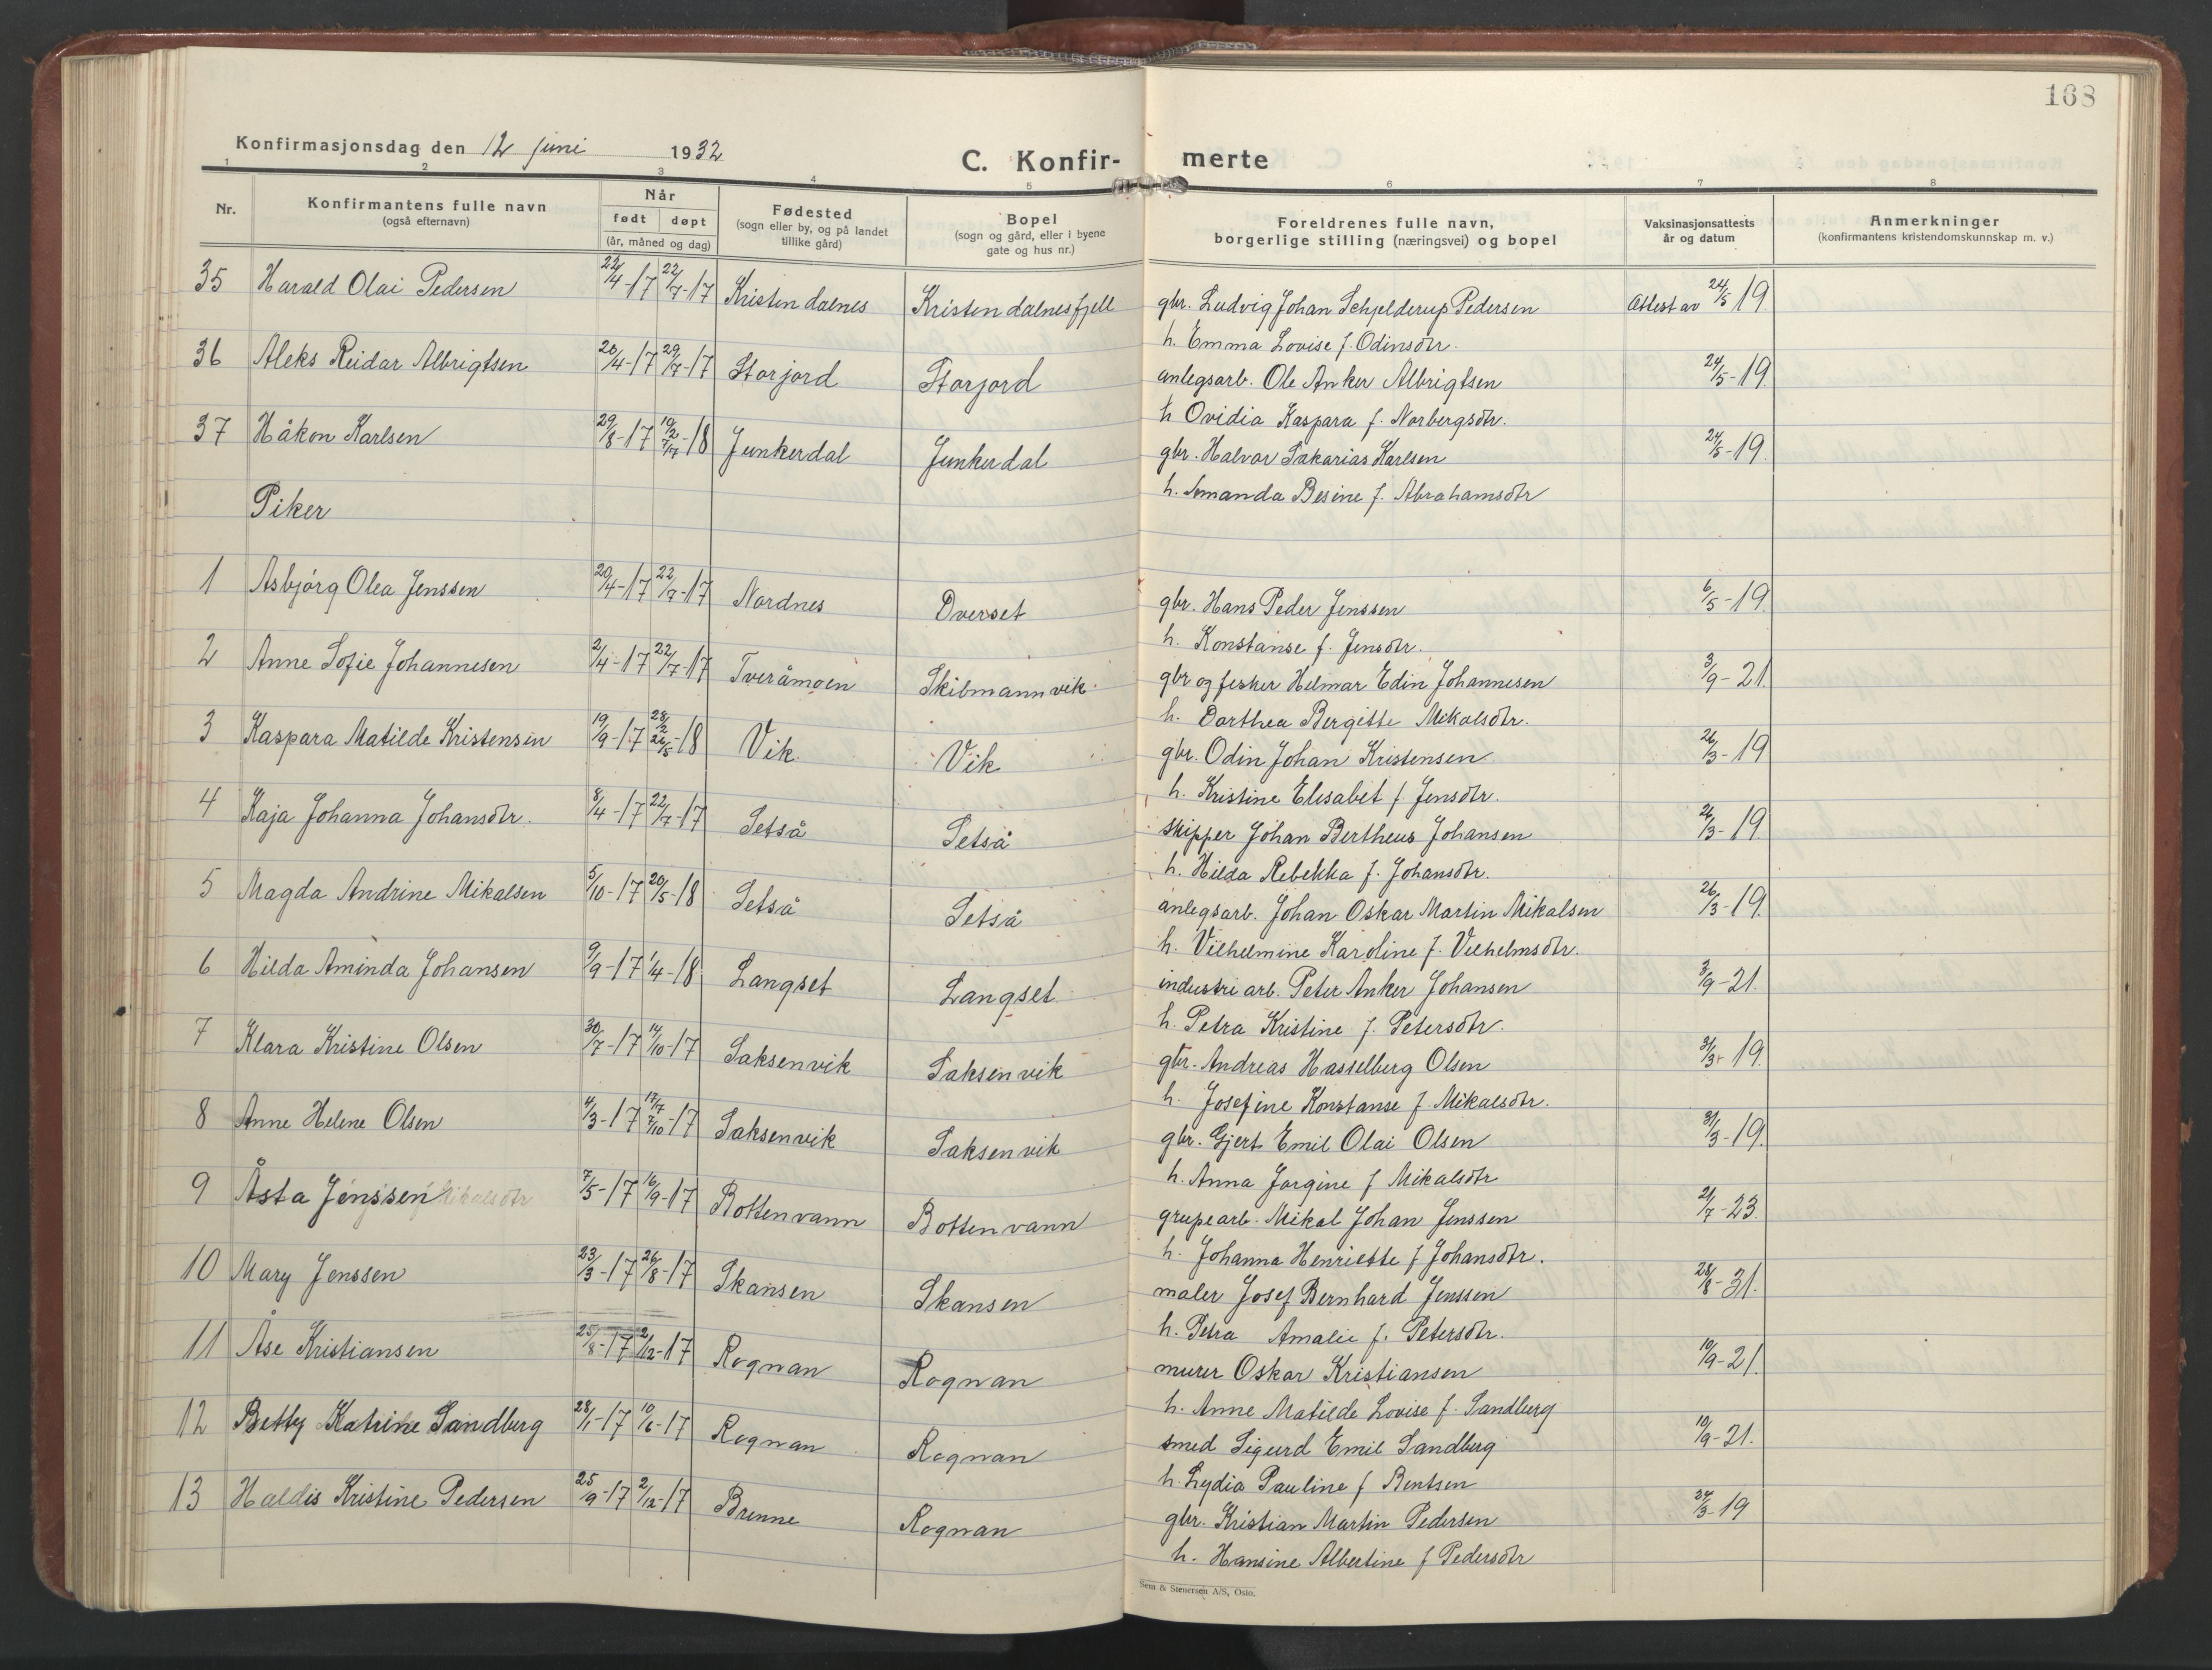 168
Konfirmasjonsdag den 12 juni 1932
C. Konfir- merte
1 2 3 4 5 6 7 8
Nr. Konfirmantens fulle navn (også efternavn) Når født døpt (år, måned og dag) Fødested (sogn eller by, og på landet tillike gård) Bopel (sogn og gård, eller i byene gate og hus nr.) Foreldrenes fulle navn, borgerlige stilling (næringsvei) og bopel Vaksinasjonsattests år og datum Anmerkninger (konfirmantens kristendomskunnskap m. v.)
35 Harald Olai Pedersen 22/4-17 22/7-17 Kristendalnes Kristendalnesfjell gbr. Ludvig Johan Schjelderup Pedersen Attest av 24/5 19.
h. Emma Lovise f. Odinsdtr.
36 Aleks Reidar Albrigtsen 20/4-17 29/7-17 Storjord Storjord anlegsarb. Ole Anker Albrigtsen 24/5-19.
h Ovidia Kaspara f. Norbergsdtr.
37 Håkon Karlsen 29/8-17 10/2 7/7-18 Junkerdal Junkerdal gbr. Halvor Sakarias Karlsen 24/5-19.
h. Amanda Besine f. Abrahamsdtr
Piker
1 Asbjørg Olea Jenssen 20/4-17 22/7-17 Nordnes Dverset gbr. Hans Peder Jenssen 6/5-19.
h. Konstanse f. Jensdtr.
2 Anne Sofie Johannesen 2/4-17 22/7-17 Tveråmoen Skibmannvik gbr og fisker Helmar Edin Johannesen 3/9-21.
h. Dorthea Bergitte Mikalsdtr.
3 Kaspara Matilde Kristensen 19/9-17 28/2 26/5-18 Vik Vik gbr. Odin Johan Kristensen 26/3-19
h. Kristine Elisabet f. Jensdtr.
4 Kaja Johanna Johansdtr. 8/4-17 22/7-17 Setså Setså skipper Johan Bertheus Johansen 26/3-19.
h. Hilda Rebekka f. Johansdtr.
5 Magda Andrine Mikalsen 5/10-17 20/5-18 Setså Setså anlegsarb. Johan Oskar Martin Mikalsen 26/3-19.
h. Vilhelmine Karoline f. Vilhelmsdtr.
6 Hilda Aminda Johansen 9/9-17 1/4-18 Langset Langset industriarb. Peter Anker Johansen 3/9-21.
h. Petra Kristine f. Petersdtr.
7 Klara Kristine Olsen 30/7-17 14/10-17 Saksenvik Saksenvik gbr. Andreas Hasselberg Olsen 31/3-19.
h. Josefine Konstanse f. Mikalsdtr.
8 Anne Helene Olsen 4/3-17 17/7 7/10-17 Saksenvik Saksenvik gbr. Gjert Emil Olai Olsen 31/3-19.
h. Anna Jorgine f Mikalsdtr
9 Åsta Jenssen Mikalsdtr 7/5-17 16/9-17 Bottenvann Bottenvann grupearb. Mikal Johan Jenssen 21/7-23.
h. Johanna Henriette f Johansdtr.
10 Mary Jenssen 23/3-17 26/8-17 Skansen Skansen maler Josef Bernhard Jenssen 28/8-31.
h. Petra Amalie f. Petersdtr.
11 Åse Kristiansen 25/8-17 2/12-17 Rognan Rognan murer Oskar Kristiansen 10/9-21.
h. Anne Matilde Lovise f. Sandberg
12 Betty Katrine Sandberg 28/1-17 10/6-17 Rognan Rognan smed Sigurd Emil Sandberg 10/9-21.
h. Lydia Pauline f Bentsen
13 Haldis Kristine Pedersen 25/9-17 2/12-17 Brenne Rognan gbr. Kristian Martin Pedersen 24/3-19
h. Hansine Albertine f Pedersdtr
Sem & Stenersen A/S, Oslo.